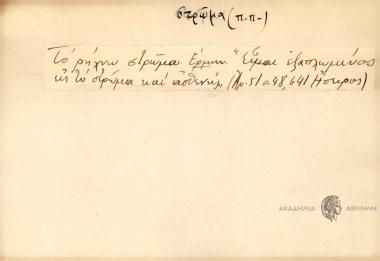 στρῶμα (π.π-)
Τὸ ρήχνω στρῶμα. Ἑρμην. "Εἶμαι ἐξαπλωμένος
εἰς τὸ στρῶμα καὶ ἀσθενὴς (Λρ. 51 α 48, 64 / Ἤπειρος)
ΑΚΑΔΗΜΙΑ ΑΘΗΝΩΝ